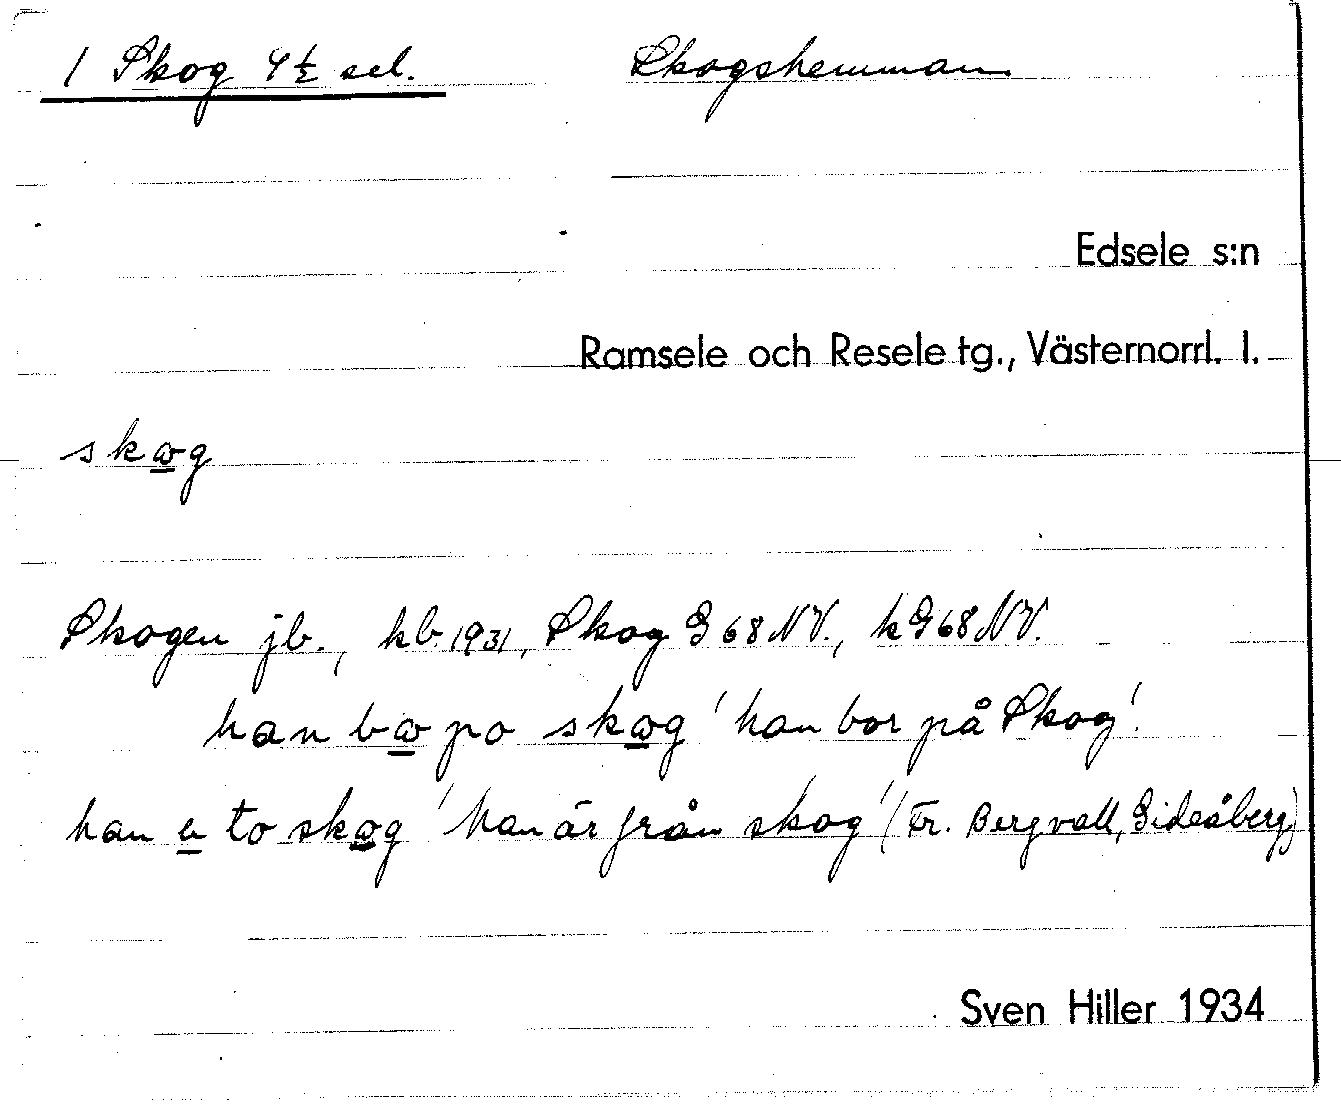 1 Skog 4½ sel. Skogshemman
Edsele s:n
Ramsele och Resele tg., Västernorrl. l.
skωg
Skogen jb., kb. 1931, Skog G 68 NV., k G 68 NV.
han bω po skωg 'han bor på Skog'.
han e to skωg 'han är från skog' (Fr. Bergvall, Gideåberg)
Sven Hiller 1934